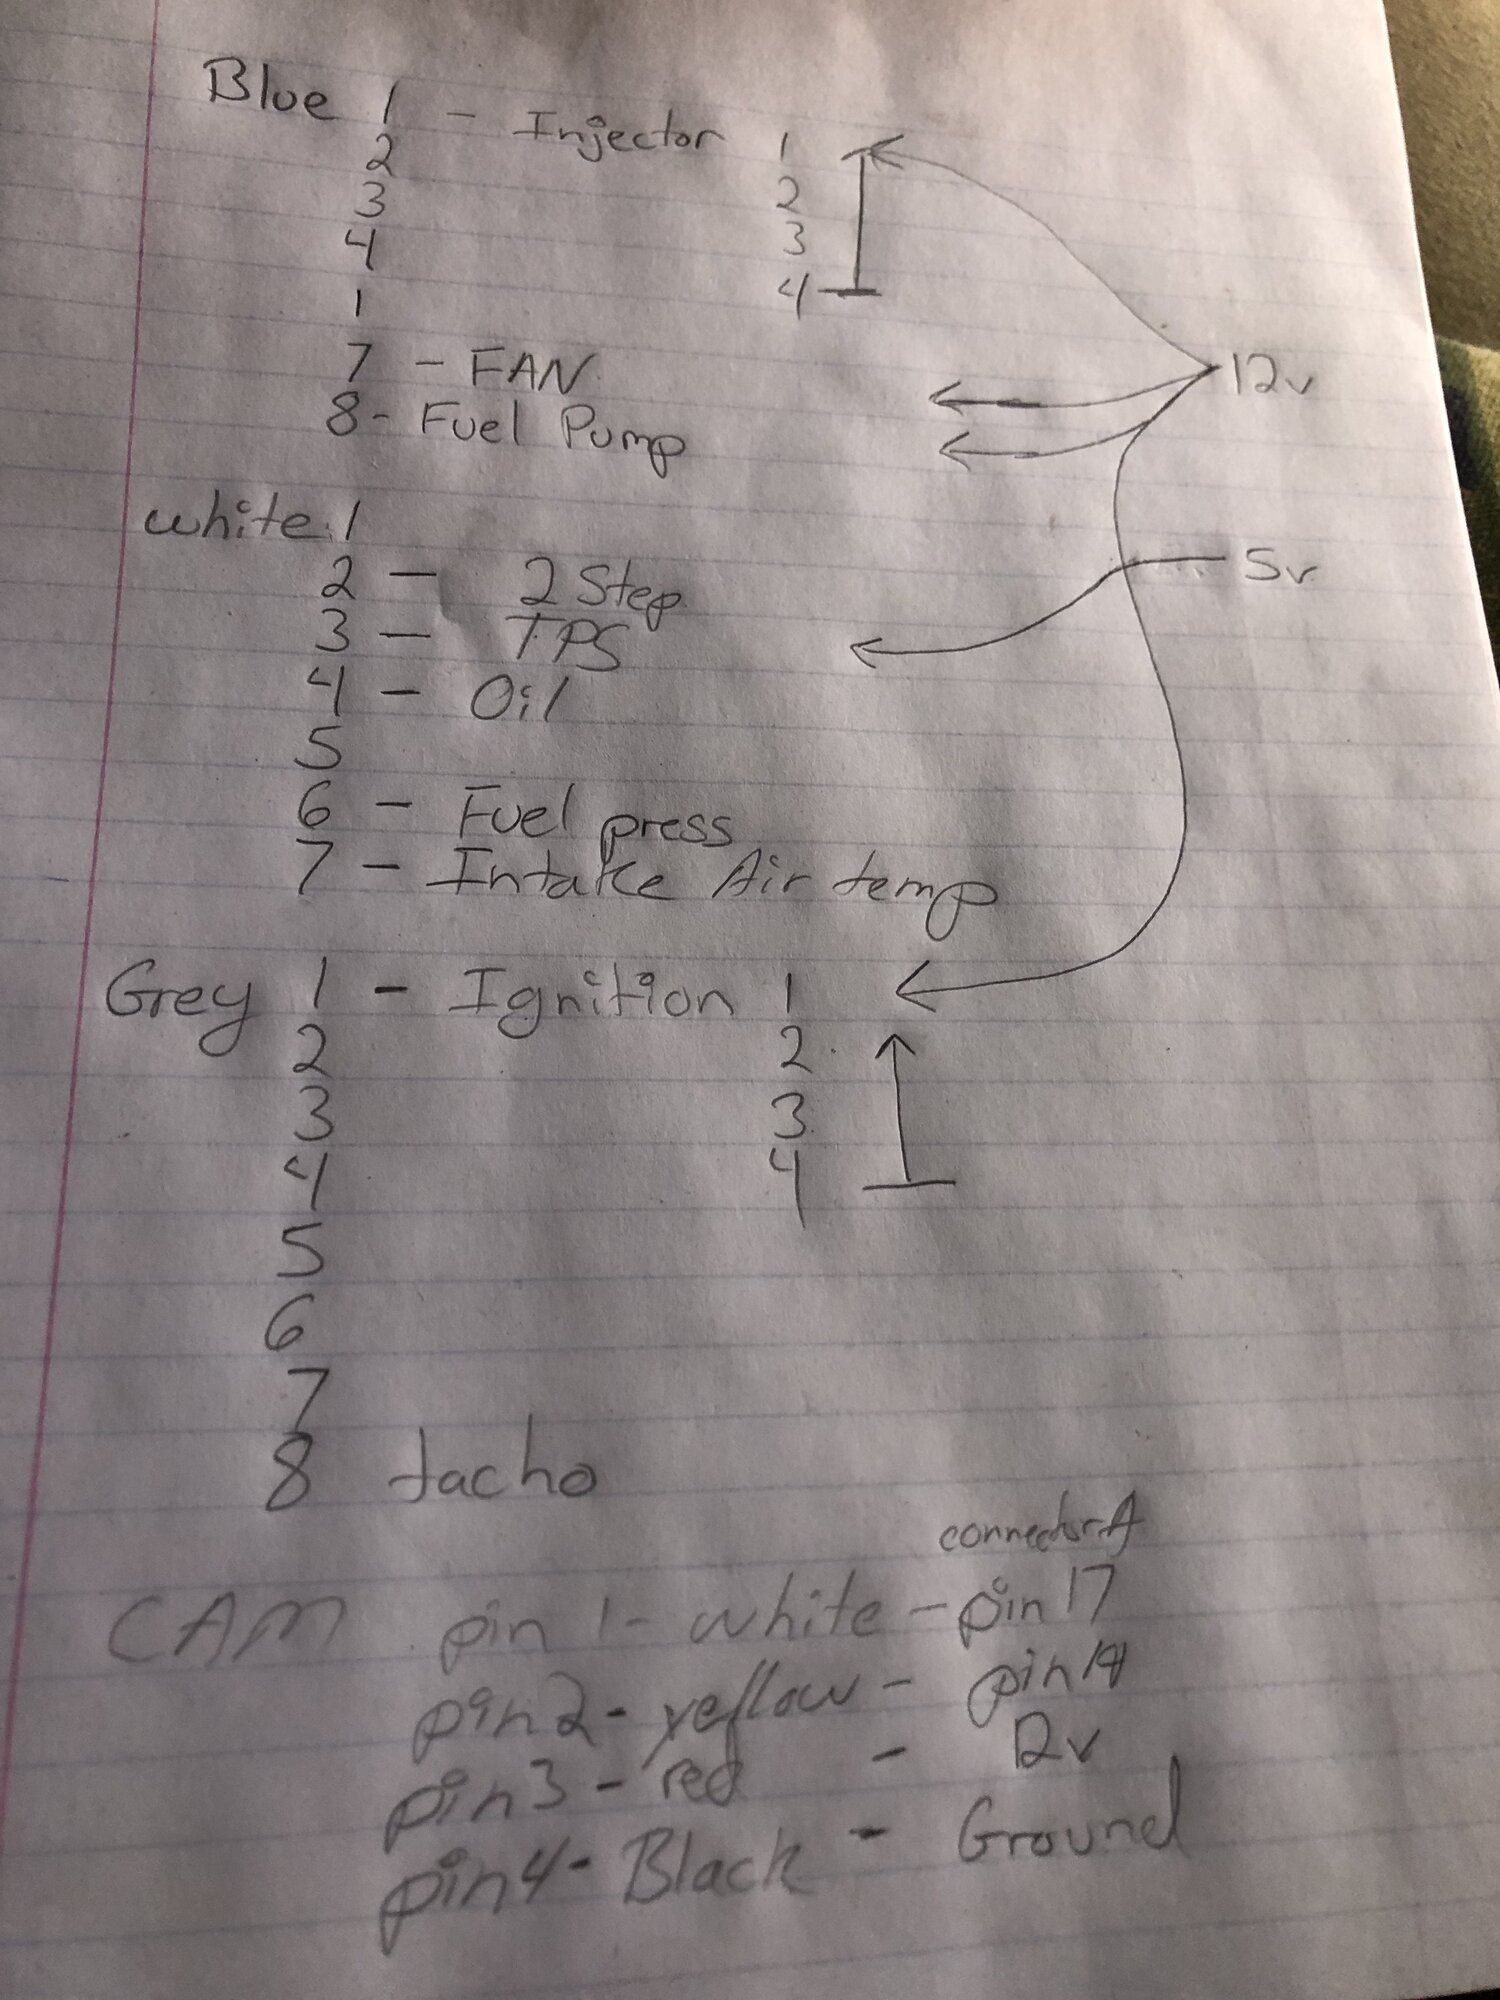 Blue 1 - Injector 1
2 2
3 3
4 4
1
7 - FAN
8 - Fuel Pump
12v
white 1
2 - 2 Step
5v
3 - TPS
4 - Oil
5
6 - Fuel press
7 - Intake Air temp
Grey 1 - Ignition 1
2 2
3 3
4 4
5
6
7
8 tacho
connector A
CAM pin 1 - white - pin 17
pin 2 - yellow - pin
pin 3 - red - 12v
pin 4 - Black - Ground